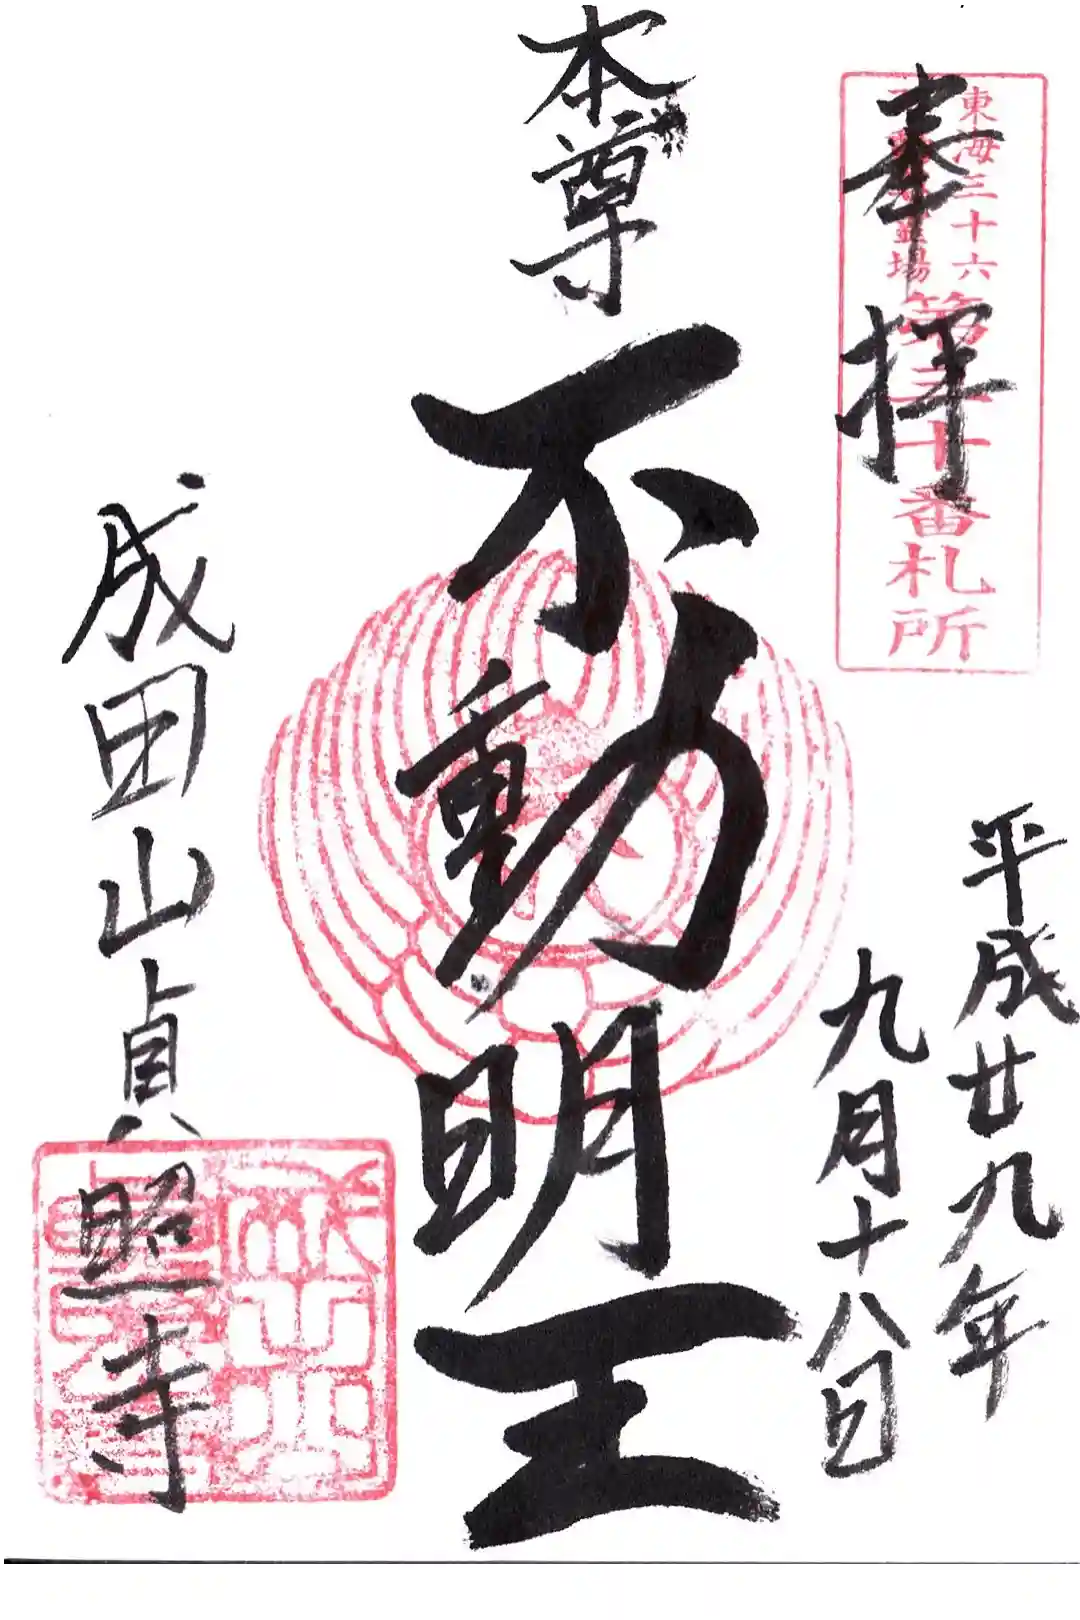 奉拝
東海三十六
不動尊霊場
第三十番札所
平成廿九年
九月十八日
本尊
不動明王
成田山貞照寺